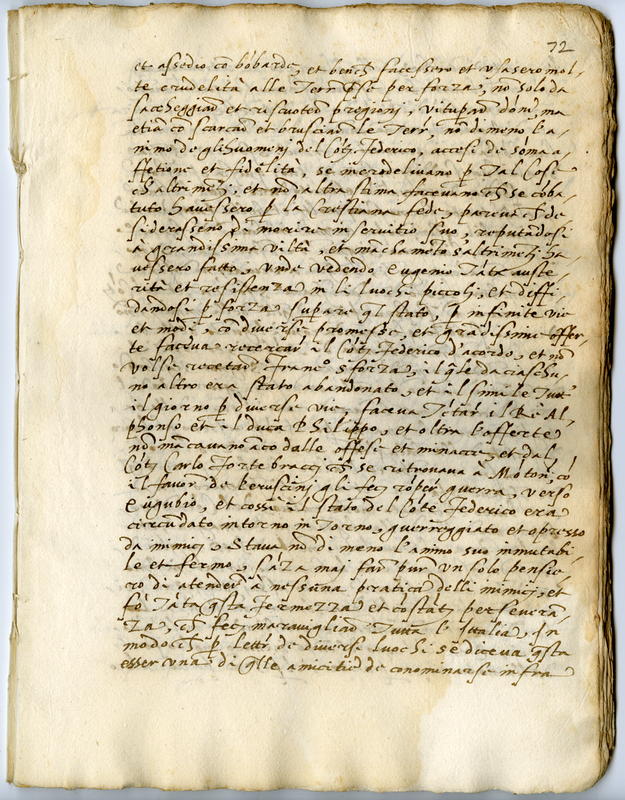 72
et assedio co bõbarde, et benchȝ facessero et usasero mol-
te crudelità alle Terr p̃se per forza, nõ solo da
saccheggiar et riscuoter pregioni, vituperar dõni, ma
etiã co scarcar et brusciar le Terr, nõ di meno l'a-
nimo de gli huomeni del Cõti Federico, accesi de sõma a-
ffetione et fidelità, se incrodelivano p Tal Cose
ch altrimẽti, et nõ altra stima facevano ch se cõba-
tuto havessero p la Cristiana fede, pareva ch de
siderasseno di morire in servitio suo, reputandosi
à grandissima viltà, et mãchamẽto s'altrimẽti ha-
vessero fatto, unde vedendo Eugenio Tãta auste-
rità et resistenza in li luochi piccoli, et diffi-
dandosi p forza supare ql stato, p infinite vie
et modi, cõ diverse promesse, et grãdissime offer-
te faceva recercar il Cõti Federico d'acordo, et nõ
volse recetar Franc° Sforza, il qle da ciaschu-
no altro era stato abandonato, et il simile Tutt
il giorno p diverse vie, faceva Tẽtar il Rè Al-
phonso et il duca Philippo, et oltra l'afferte
nõ mãcavano ãco dalle offese et minacce, et dal
Cõti Carlo Fortebracci ch se ritrovava à Mõtoni, cõ
il favor de Peruscini gli feci rõper guerra, verso
Eugubio, et cossi il stato del Cõte Federico era
circundato intorno in Torno, guerreggiato et opresso
da inimici, Stava nõ di meno l'animo suo immutabi-
le et fermo, sãza mai far pur un solo pensie-
ro di atender à nessuna pratica delli inimici, et
fò Tãta qsta fermezza et costãti persevera-
za, ch feci maravigliar Tutta l'Italia, In
modo ch p lettr de diverse luochi se diceva qsta
esser una di qlle amicitie de conominarse infra